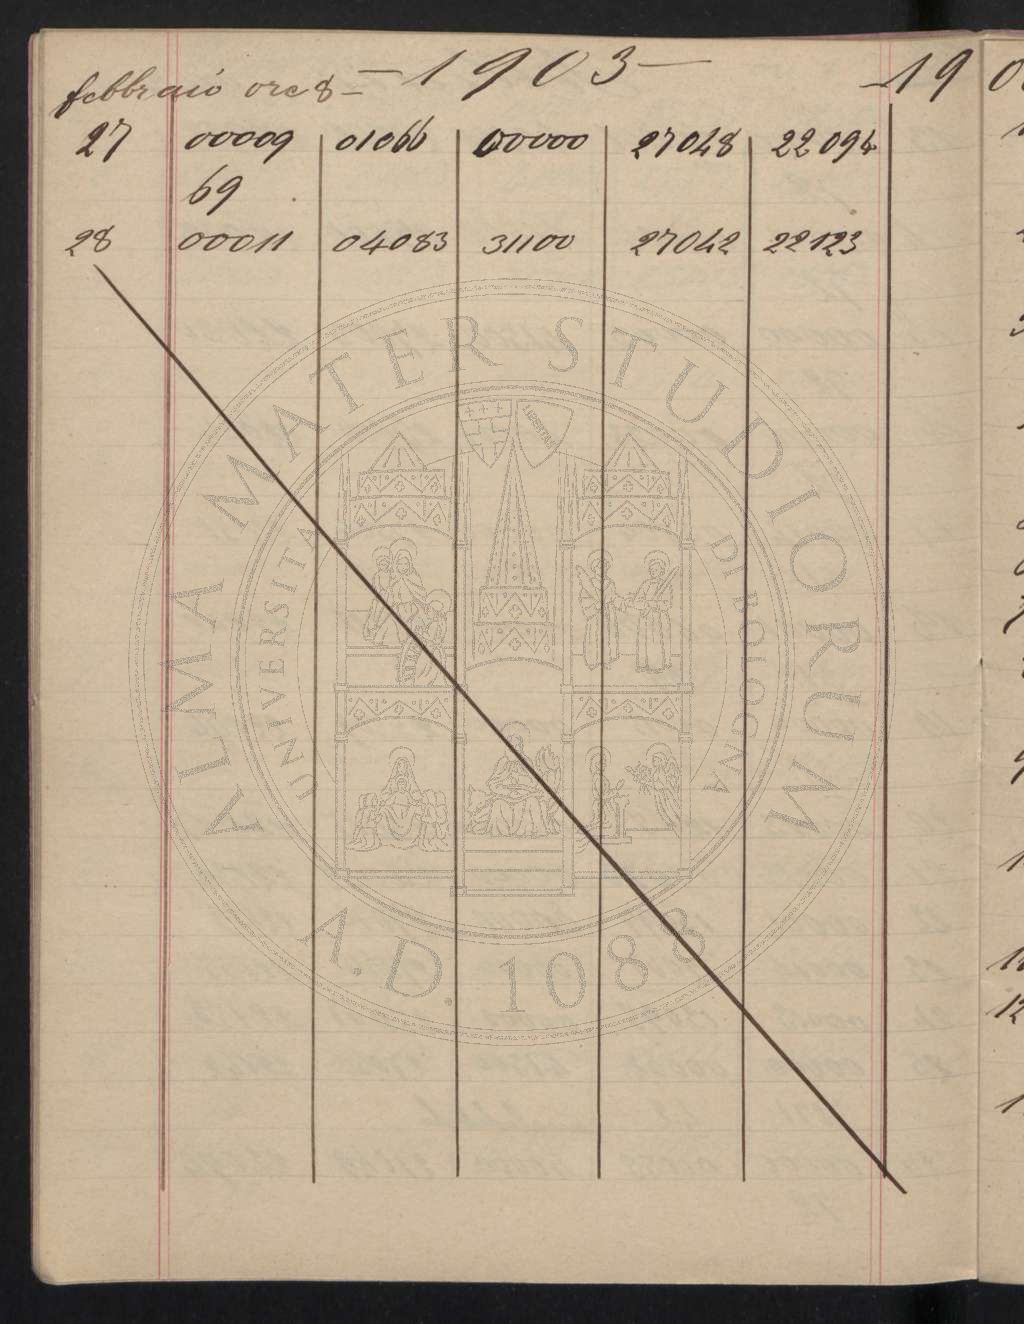 febbraio ore 8 — 1903 —
27 00009 01066 00000 27048 22094
69
28 00011 04083 31100 27042 22123
ALMA MATER STUDIORUM
UNIVERSITA DI BOLOGNA
LIBERTAS
A.D. 1088